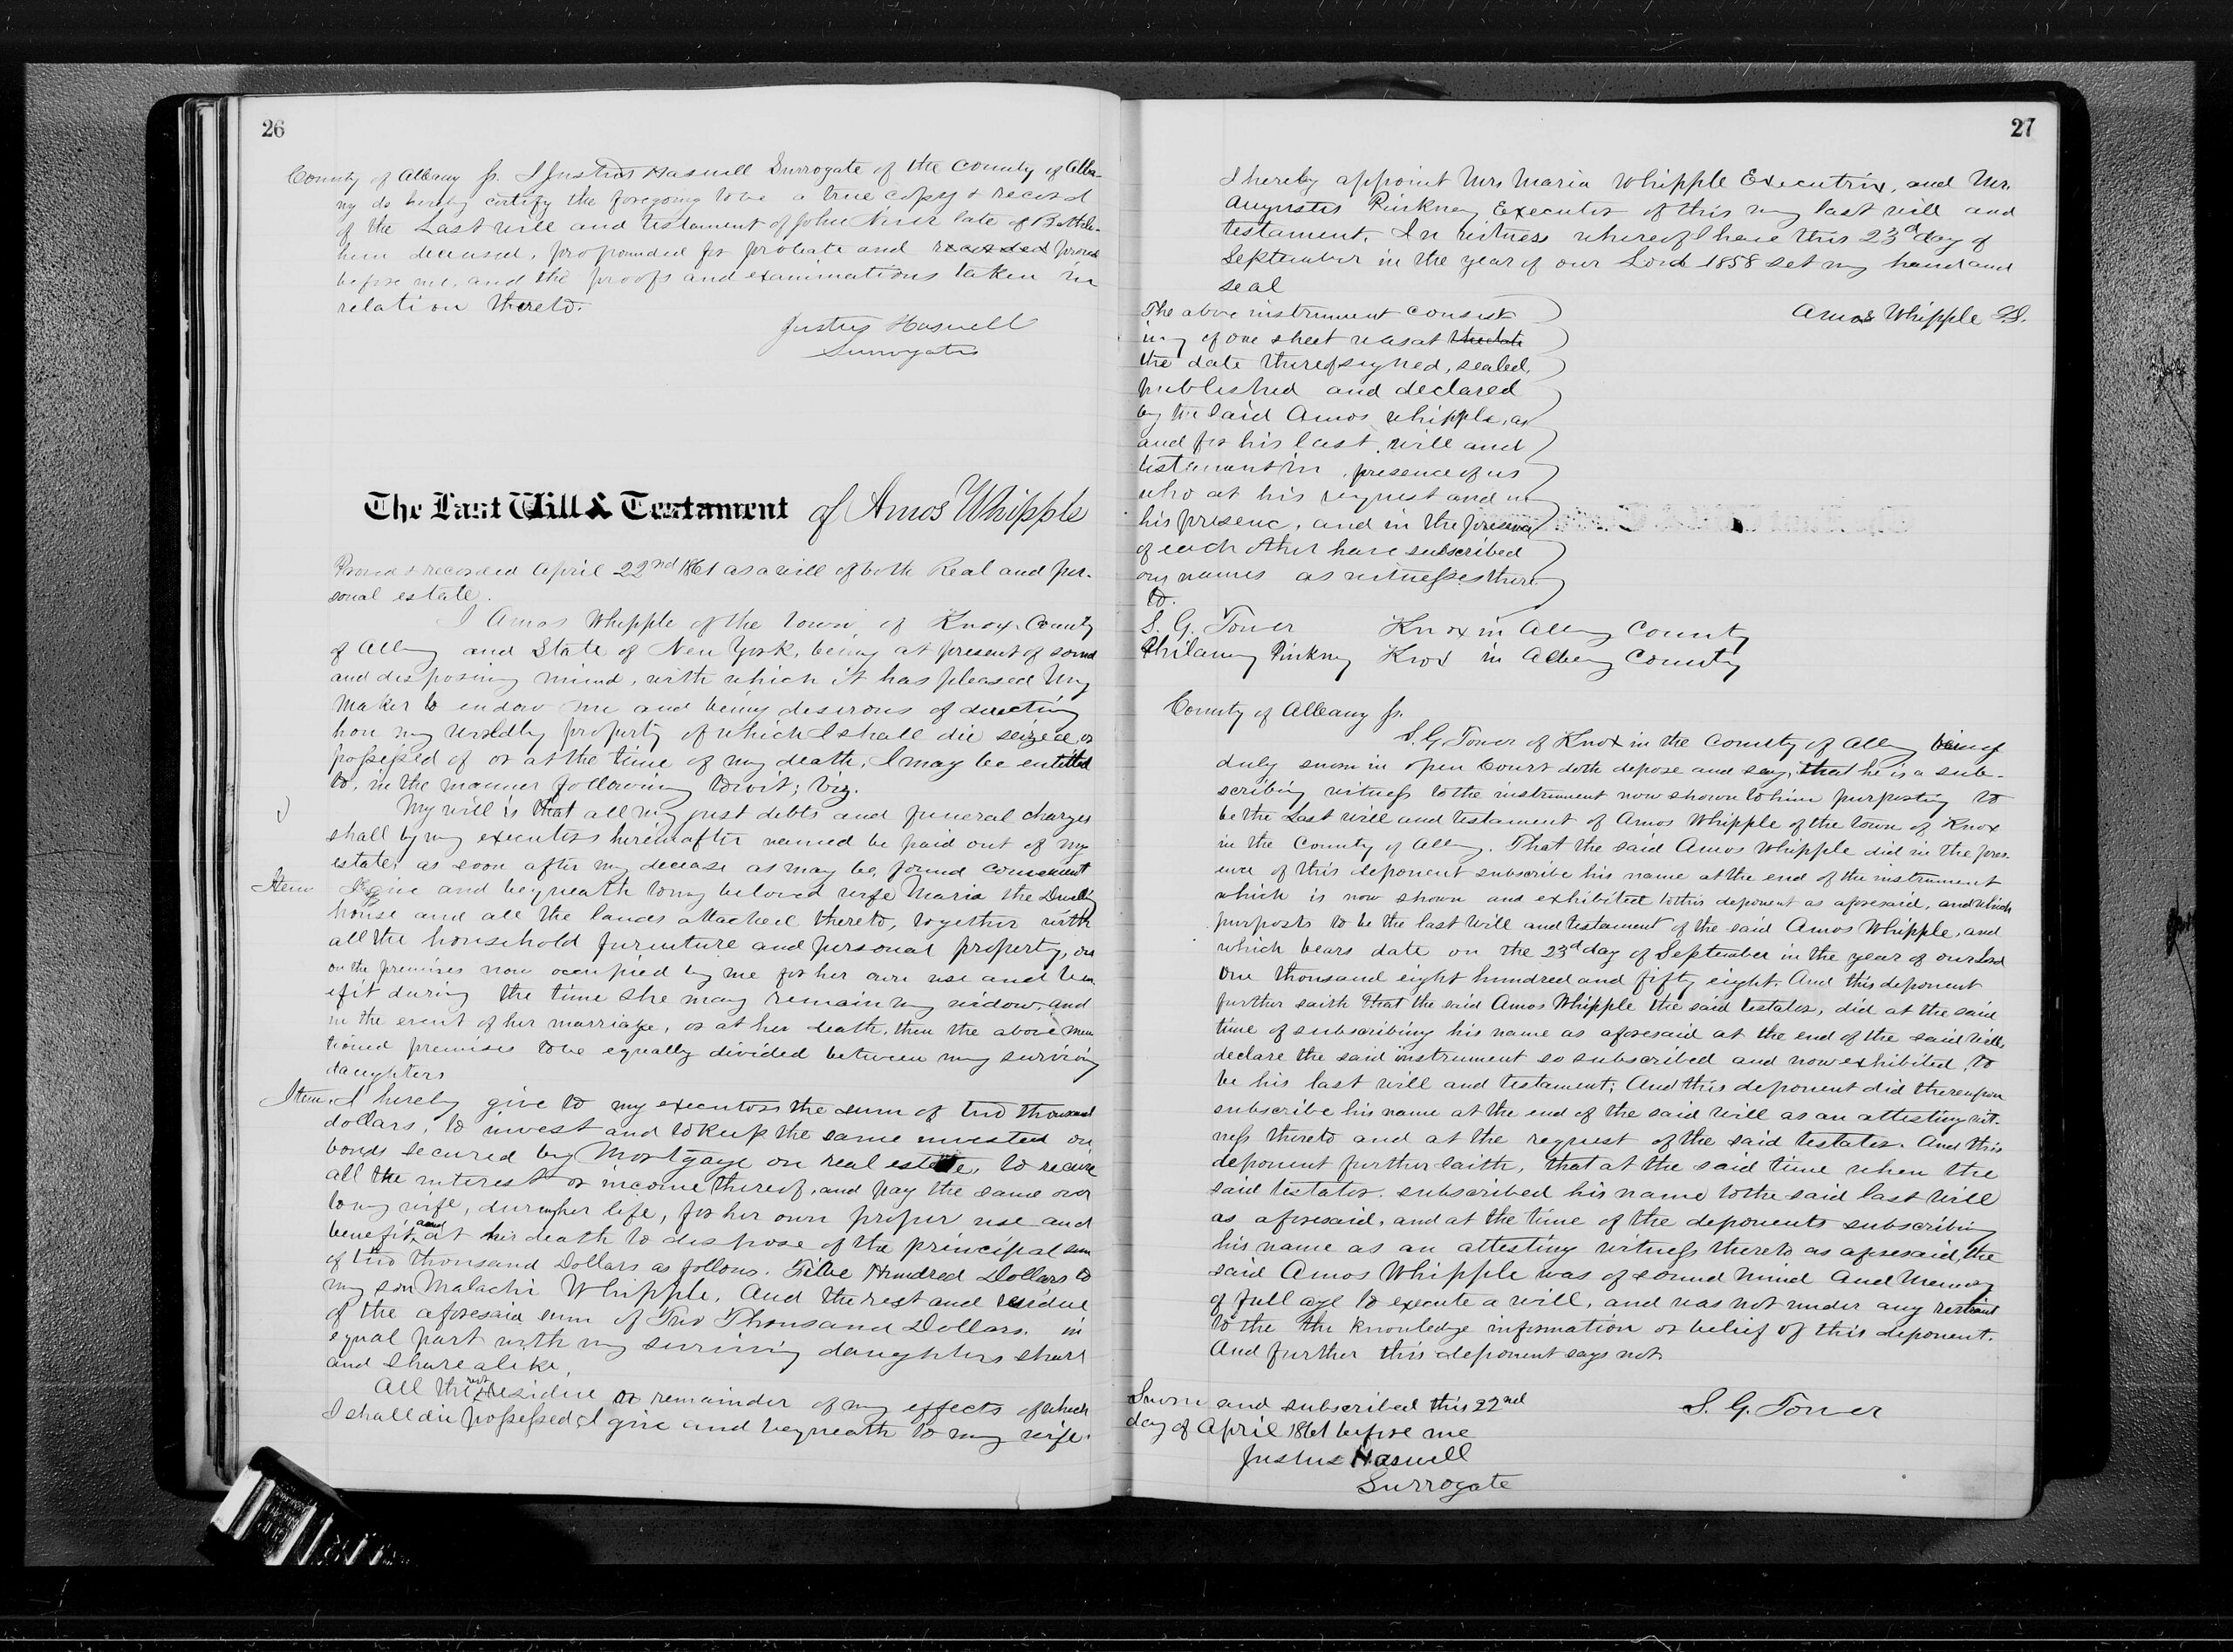 26
County of Albany ss. I Justus Haswell Surrogate of the County of Alba-
ny do hereby certify the foregoing to be a true copy & record
of the Last will and testament of John late of Bethle-
hem deceased, propounded for probate and recorded proved
before me, and the proofs and examinations taken in
relation thereto.
Justus Haswell
Surrogate
The Last Will & Testament of Amos Whipple
Proved & recorded April 22nd 1861 as a will of both Real and per-
sonal estate.
I Amos Whipple of the town of Knox County
of Albany and State of New York, being at present of sound
and disposing mind, with which it has pleased my
Maker to endow me and being desirous of directing
how my worldly property of which I shall die seized or
possessed of or at the time of my death, I may be entitled
to, in the manner following towit; viz.
My will is that all my just debts and funeral charges
shall by my executors hereinafter named be paid out of my
estate, as soon after my decease as may be found convenient
Item I give and bequeath to my beloved wife Maria the Dwelling
house and all the lands attached thereto, together with
all the household furniture and personal property, on
on the premises now occupied by me for her own use and ben
efit during the time she may remain my widow, and
in the event of her marriage, or at her death, then the above men
tioned premises to be equally divided between my surviving
daughters
Item. I hereby give to my executors the sum of two thousand
dollars, to invest and to keep the same invested on
bonds secured by Mortgage on real estate, to receive
all the interest or income thereof, and pay the same over
to my wife, during her life, for her own proper use and
benefit, and at her death to dispose of the principal sum
of two thousand Dollars as follows. Five Hundred Dollars to
my son Malachi Whipple. And the rest and residue
of the aforesaid sum of Two Thousand Dollars in
equal part with my surviving daughters share
and share alike.
All the rest residue or remainder of my effects of which
I shall die possessed I give and bequeath to my wife.
27
I hereby appoint Mrs Maria Whipple Executrix, and Mr.
Augustus Pinkney Executor of this my last will and
testament. In witness whereof I have this 23d day of
September in the year of our Lord 1858 set my hand and
seal
Amos Whipple L.S.
The above instrument consist
ing of one sheet was at the date
the date thereof signed, sealed,
published and declared
by the said Amos Whipple, as
and for his last will and
testament in presence of us
who at his request and in
his presenc, and in the presence
of each other have subscribed
our names as witnesses there
to.
S. G. Tower Knox in Albany County
Philamy Pinkney Knox in Albany County
County of Albany ss.
S. G. Tower of Knox in the County of Albany being
duly sworn in open Court doth depose and say, that he is a sub-
scribing witness to the instrument now shown to him purporting to
be the Last will and testament of Amos Whipple of the town of Knox
in the County of Albany. That the said Amos Whipple did in the pres-
ence of this deponent subscribe his name at the end of the instrument
which is now shown and exhibited to this deponent as aforesaid, and which
purports to be the last will and testament of the said Amos Whipple, and
which bears date on the 23d day of September in the year of our Lord
One thousand eight hundred and fifty eight. And this deponent
further saith that the said Amos Whipple the said testator, did at the said
time of subscribing his name as aforesaid at the end of the said will,
declare the said instrument so subscribed and now exhibited, to
be his last will and testament; And this deponent did thereupon
subscribe his name at the end of the said will as an attesting wit-
ness thereto and at the request of the said testator. And this
deponent further saith, that at the said time when the
said testator subscribed his name to the said last will
as aforesaid, and at the time of the deponents subscribing
his name as an attesting witness thereto as aforesaid, the
said Amos Whipple was of sound mind and Memory
of full age to execute a will, and was not under any restraint
to the the knowledge information or belief of this deponent.
And further this deponent says not.
S. G. Tower
Sworn and subscribed this 22nd
day of April 1861 before me
Justus Haswell
Surrogate